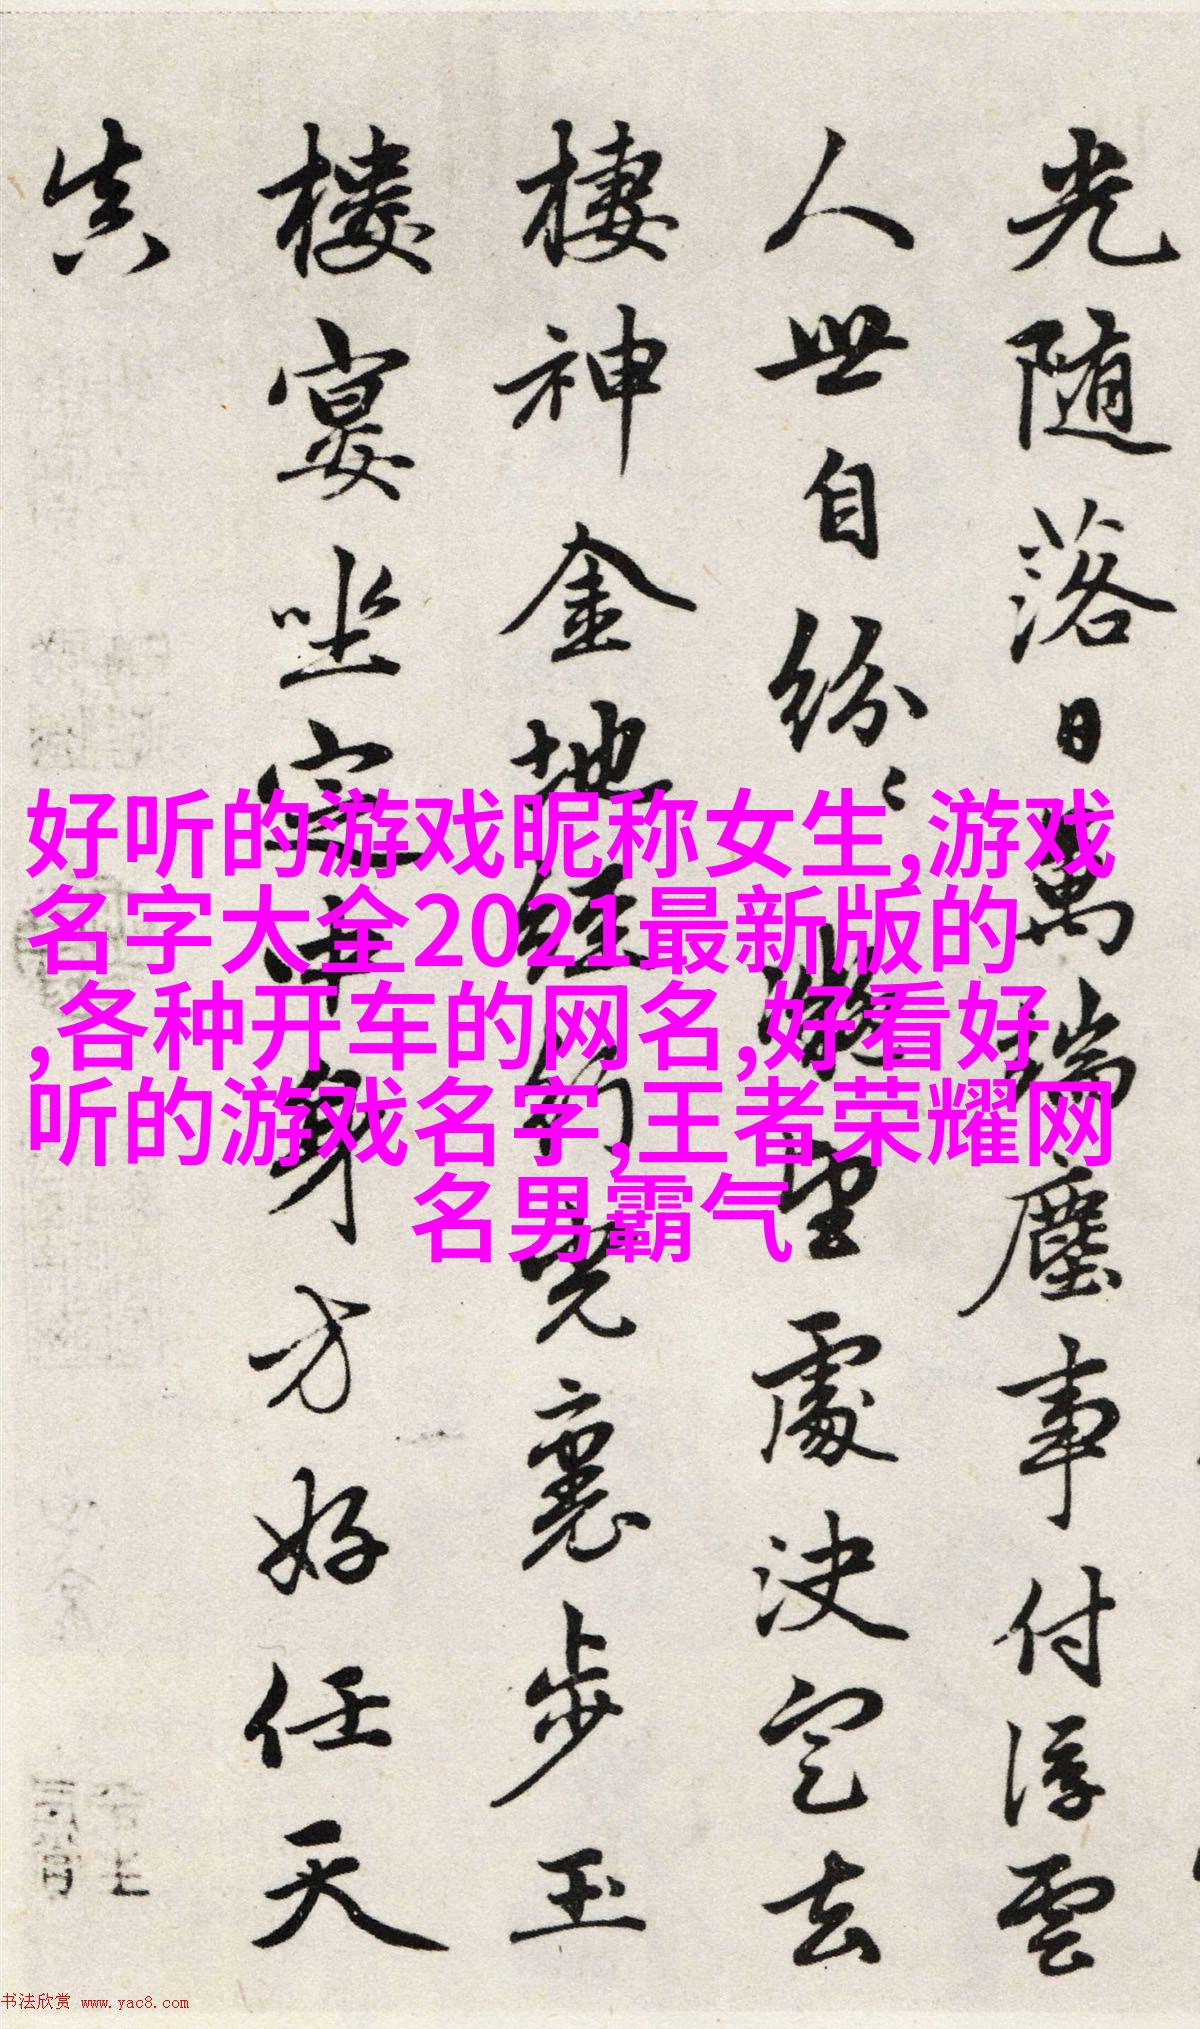 光随落日萬端塵事付浮雲
人世自纷〻凝望處决定去
棲神金地經行光裏步玉
楼宴坐定中身方好任天
真
好听的游戏昵称女生,游戏
名字大全2021最新版的
,各种开车的网名,好看好
听的游戏名字,王者荣耀网
名男霸气
书法欣赏 www.yac8.com